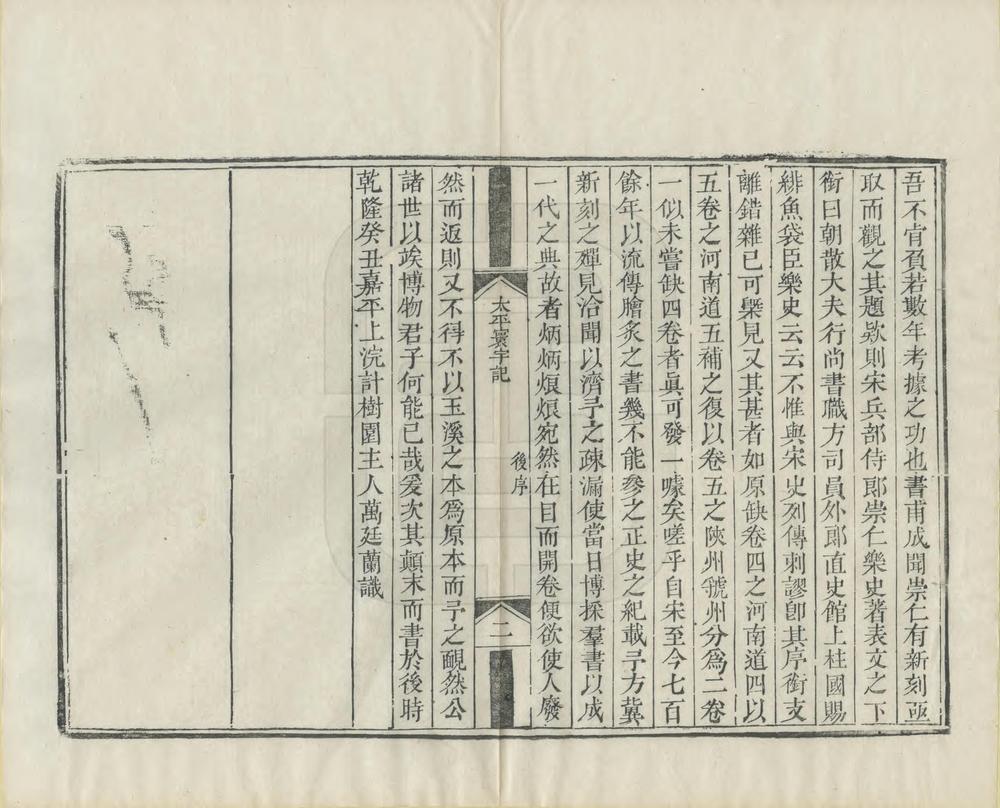 吾不肯負若數年考據之功也書甫成聞崇仁有新刻亟
取而觀之其題欵則宋兵部侍郎崇仁樂史著表文之下
銜曰朝散大夫行尚書職方司員外郎直史館上柱國賜
緋魚袋臣樂史云云不惟與宋史列傳刺謬卽其序銜支
離錯雜已可槩見又其甚者如原缺卷四之河南道四以
五卷之河南道五補之復以卷五之陝州虢州分爲二卷
一似未嘗缺四卷者眞可發一噱矣嗟乎自宋至今七百
餘年以流傳膾炙之書幾不能參之正史之紀載予方冀
新刻之殫見洽聞以濟予之疎漏使當日博採羣書以成
一代之典故者炳炳烺烺宛然在目而開卷便欲使人廢
太平寰宇記
後序
二
然而返則又不得不以玉溪之本爲原本而予之靦然公
諸世以竢博物君子何能已哉爰次其顛末而書於後時
乾隆癸丑嘉平上浣計樹園主人萬廷蘭識